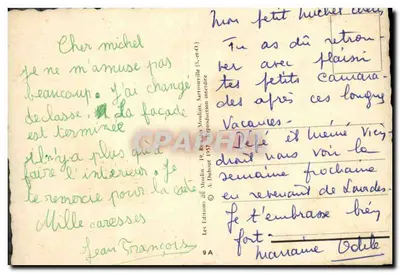 Cher michel
je ne m'amuse pas
beaucoup. J'ai changé
de classe. La façade
est terminée
il n'y a plus qu'à
faire l'interieur. Je
te remercie pour la
Mille caresses
Jean François
Les Editions du Moulin - 19, Moulin, Sartrouville (S.-et-O.)
A. Dubout 1957 Reproduction interdite
9A
CPARAMA.COM
mon petit michel
Tu as dû retrou-
ver avec plaisir
tes petits camara-
des après ces longues
vacances.
Pépé et mémé Vien-
dront nous voir la
semaine prochaine
en revenant de Lourdes.
Je t'embrasse bien
fort.
marraine Odile